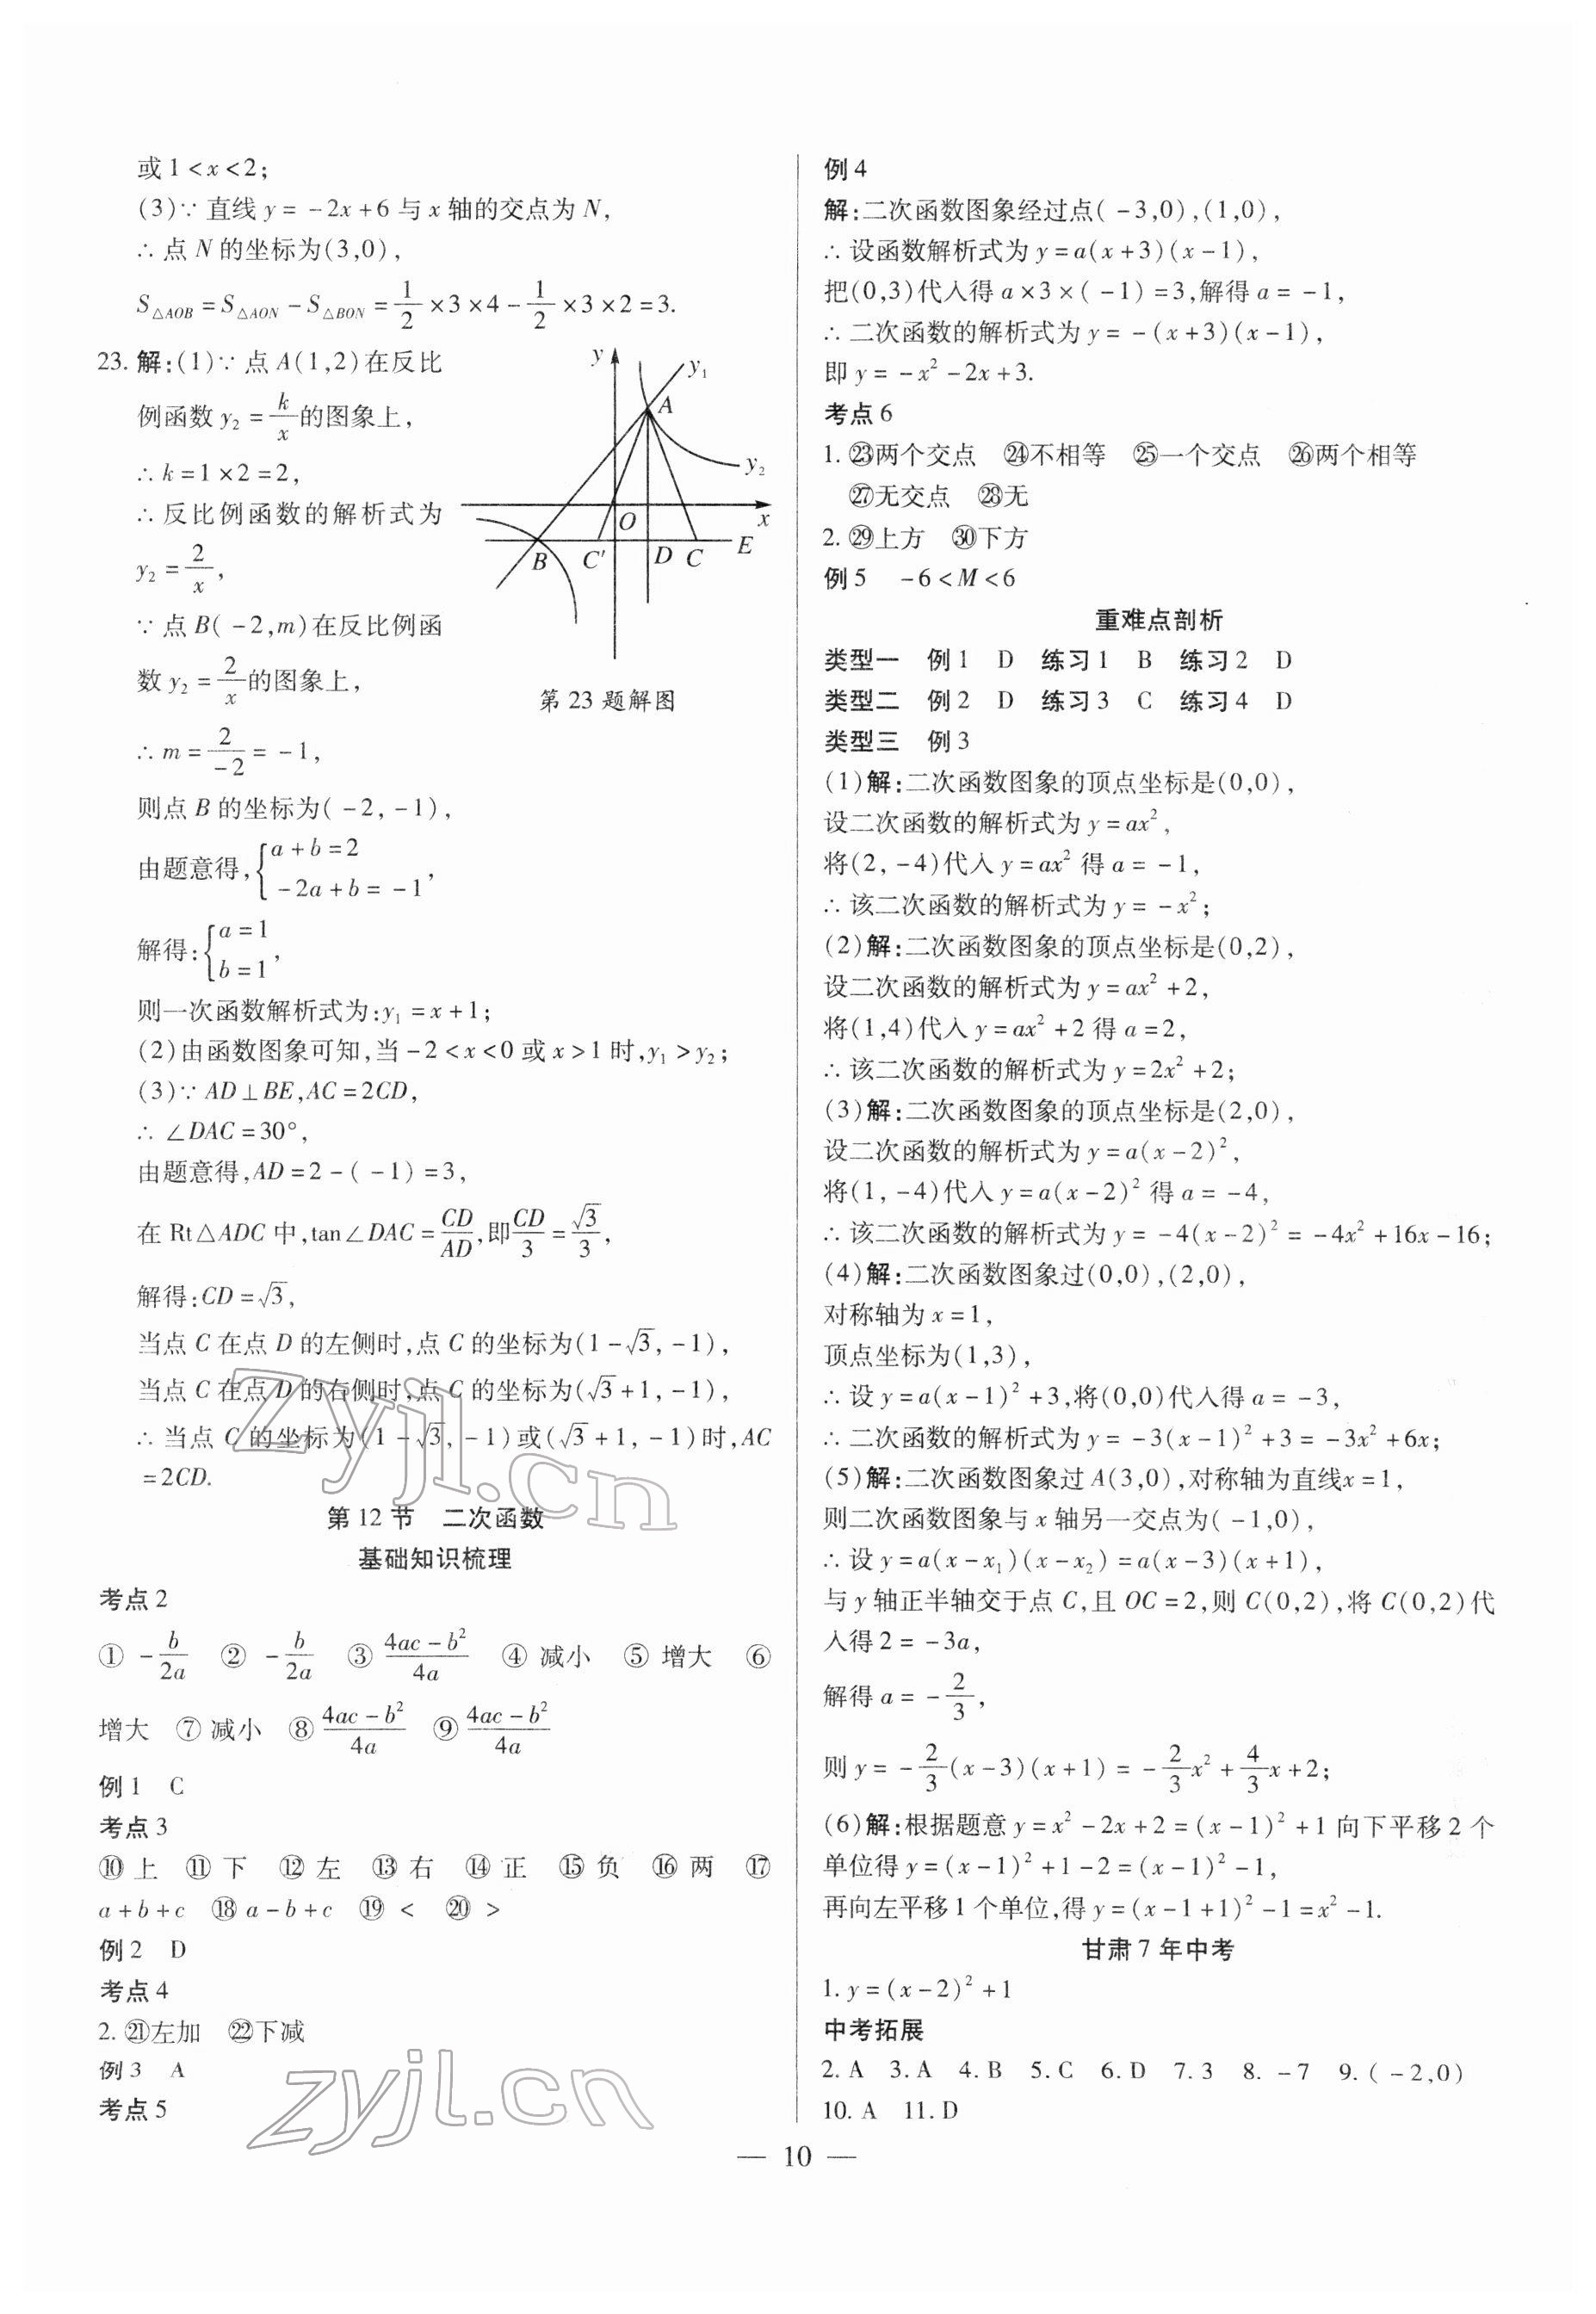 或1<x<2;
(3)∵直线y=-2x+6与x轴的交点为N,
∴点N的坐标为(3,0),
S△AOB=S△AON-S△BON=1/2×3×4-1/2×3×2=3.
23.解:(1)∵点A(1,2)在反比
例函数y₂=k/x的图象上,
∴k=1×2=2,
∴反比例函数的解析式为
y₂=2/x,
∵点B(-2,m)在反比例函
数y₂=2/x的图象上,
∴m=2/-2=-1,
y
y₁
A
y₂
O
x
B
C'
D
C
E
第23题解图
则点B的坐标为(-2,-1),
由题意得,{a+b=2
-2a+b=-1,
解得:{a=1
b=1,
则一次函数解析式为:y₁=x+1;
(2)由函数图象可知,当-2<x<0或x>1时,y₁>y₂;
(3)∵AD⊥BE,AC=2CD,
∴∠DAC=30°,
由题意得,AD=2-(-1)=3,
在Rt△ADC中,tan∠DAC=CD/AD,即CD/3=√3/3,
解得:CD=√3,
当点C在点D的左侧时,点C的坐标为(1-√3,-1),
当点C在点D的右侧时,点C的坐标为(√3+1,-1),
∴当点C的坐标为(1-√3,-1)或(√3+1,-1)时,AC
=2CD.
第12节 二次函数
基础知识梳理
考点2
①-b/2a ②-b/2a ③(4ac-b²)/4a ④减小 ⑤增大 ⑥
增大 ⑦减小 ⑧(4ac-b²)/4a ⑨(4ac-b²)/4a
例1 C
考点3
⑩上 ⑪下 ⑫左 ⑬右 ⑭正 ⑮负 ⑯两 ⑰
a+b+c ⑱a-b+c ⑲< ⑳>
例2 D
考点4
2.㉑左加 ㉒下减
例3 A
考点5
例4
解:二次函数图象经过点(-3,0),(1,0),
∴设函数解析式为y=a(x+3)(x-1),
把(0,3)代入得a×3×(-1)=3,解得a=-1,
∴二次函数的解析式为y=-(x+3)(x-1),
即y=-x²-2x+3.
考点6
1.㉓两个交点 ㉔不相等 ㉕一个交点 ㉖两个相等
㉗无交点 ㉘无
2.㉙上方 ㉚下方
例5 -6<M<6
重难点剖析
类型一 例1 D 练习1 B 练习2 D
类型二 例2 D 练习3 C 练习4 D
类型三 例3
(1)解:二次函数图象的顶点坐标是(0,0),
设二次函数的解析式为y=ax²,
将(2,-4)代入y=ax²得a=-1,
∴该二次函数的解析式为y=-x²;
(2)解:二次函数图象的顶点坐标是(0,2),
设二次函数的解析式为y=ax²+2,
将(1,4)代入y=ax²+2得a=2,
∴该二次函数的解析式为y=2x²+2;
(3)解:二次函数图象的顶点坐标是(2,0),
设二次函数的解析式为y=a(x-2)²,
将(1,-4)代入y=a(x-2)²得a=-4,
∴该二次函数的解析式为y=-4(x-2)²=-4x²+16x-16;
(4)解:二次函数图象过(0,0),(2,0),
对称轴为x=1,
顶点坐标为(1,3),
∴设y=a(x-1)²+3,将(0,0)代入得a=-3,
∴二次函数的解析式为y=-3(x-1)²+3=-3x²+6x;
(5)解:二次函数图象过A(3,0),对称轴为直线x=1,
则二次函数图象与x轴另一交点为(-1,0),
∴设y=a(x-x₁)(x-x₂)=a(x-3)(x+1),
与y轴正半轴交于点C,且OC=2,则C(0,2),将C(0,2)代
入得2=-3a,
解得a=-2/3,
则y=-2/3(x-3)(x+1)=-2/3x²+4/3x+2;
(6)解:根据题意y=x²-2x+2=(x-1)²+1向下平移2个
单位得y=(x-1)²+1-2=(x-1)²-1,
再向左平移1个单位,得y=(x-1+1)²-1=x²-1.
甘肃7年中考
1.y=(x-2)²+1
中考拓展
2.A 3.A 4.B 5.C 6.D 7.3 8.-7 9.(-2,0)
10.A 11.D
— 10 —
zyjl.cn
zyjl.cn